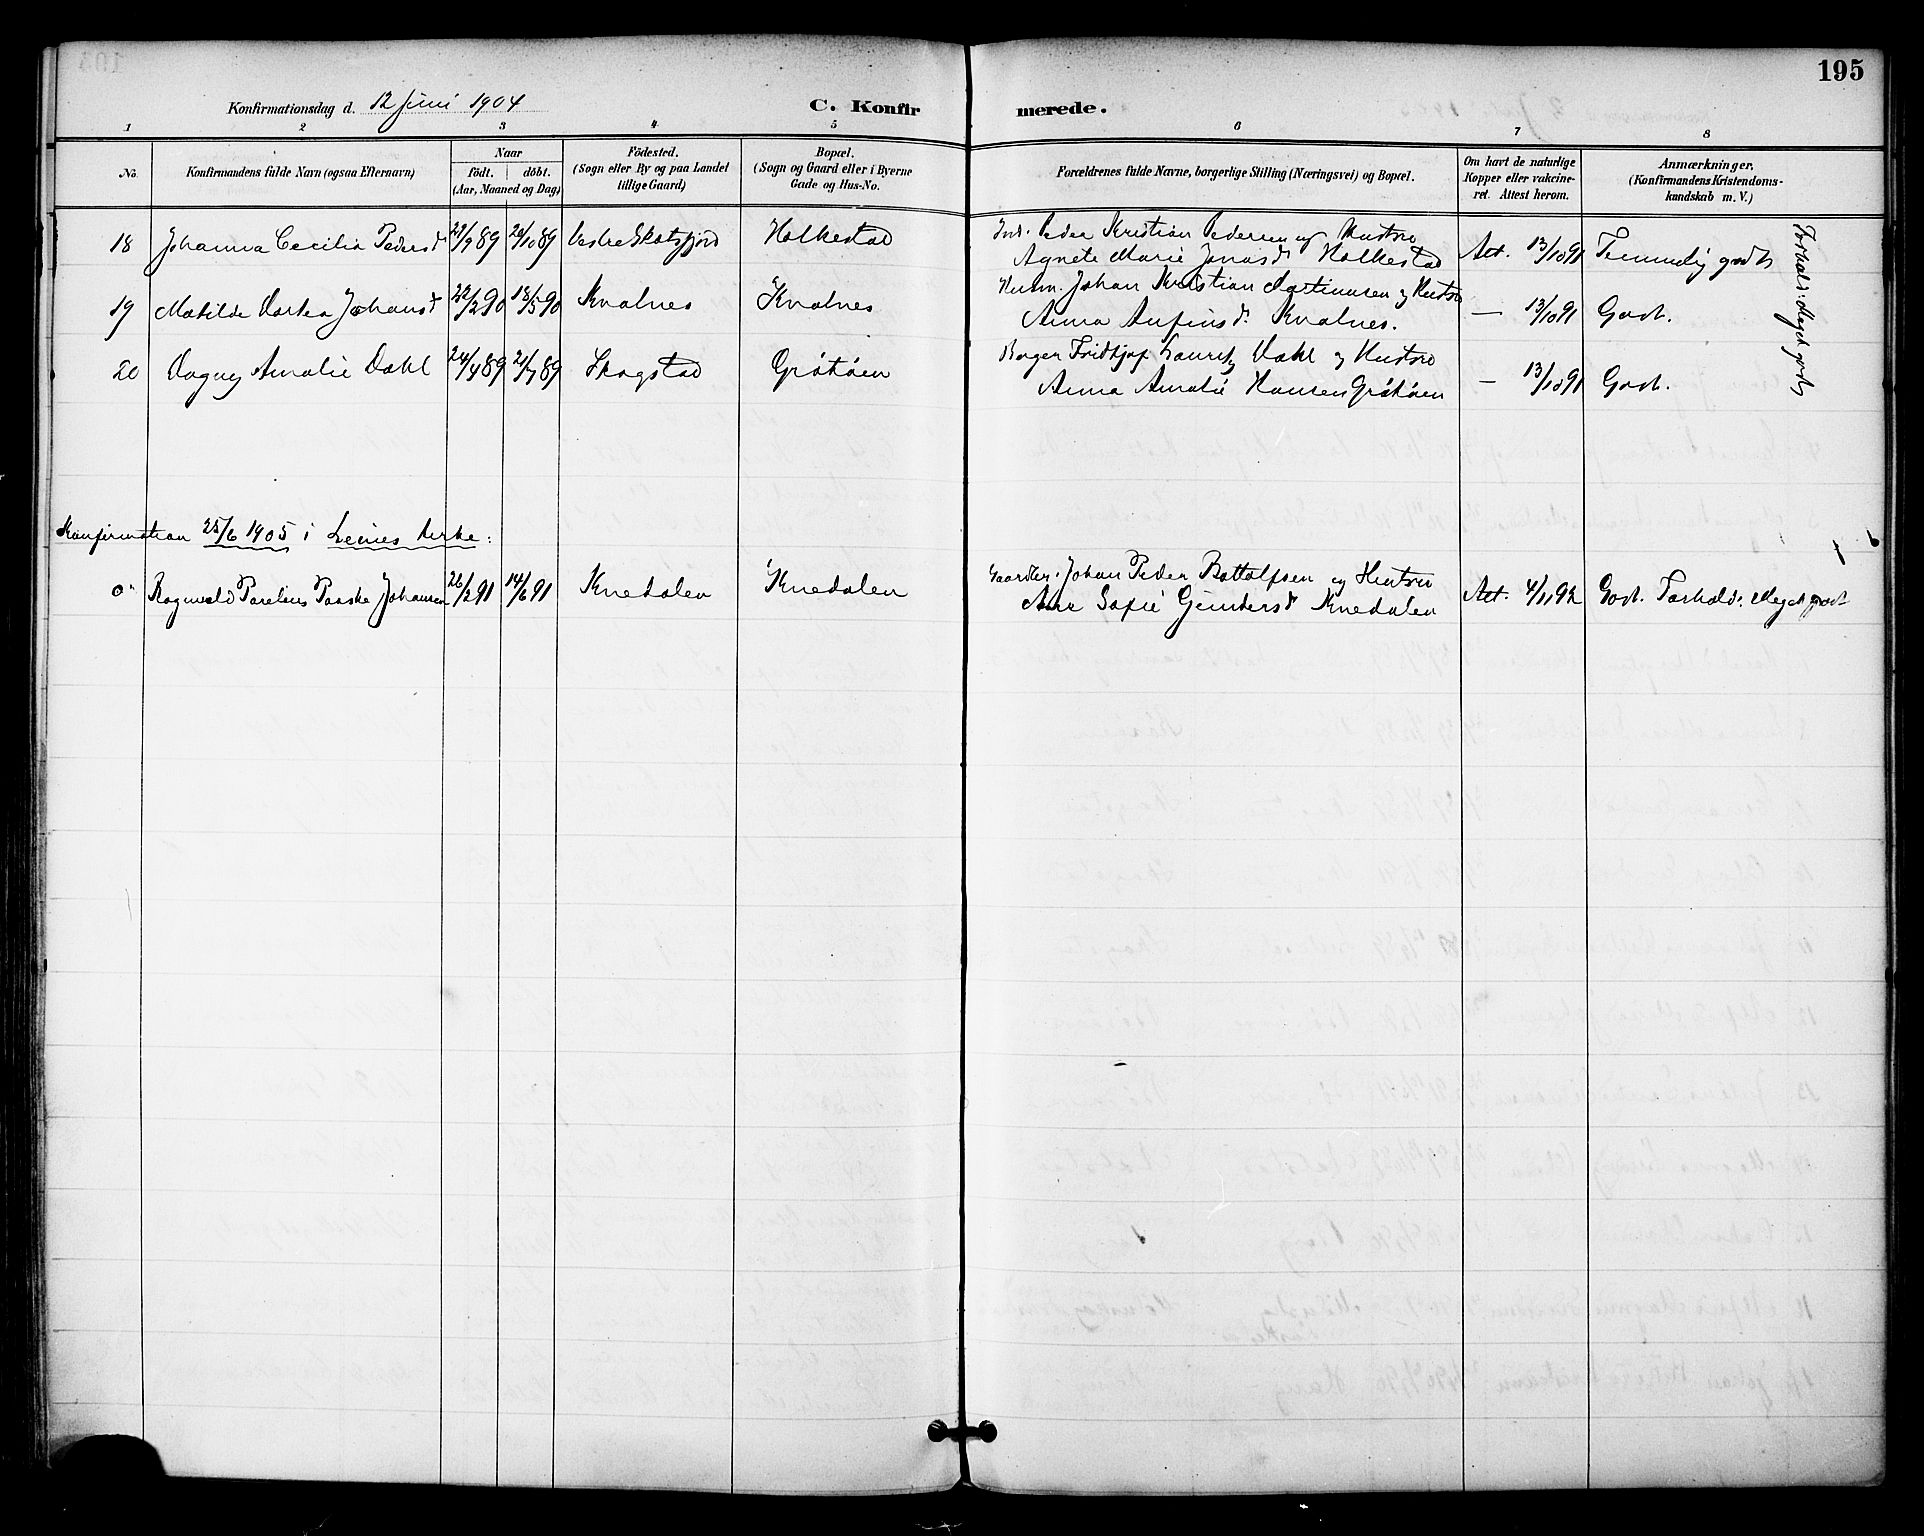 195
Konfirmationsdag d. 12 Juni 1904
C. Konfirmerede.
1 2 3 4 5 6 7 8
No.
Konfirmandens fulde Navn (ogsaa Efternavn)
Naar
födt. döbt.
(Aar, Maaned og Dag)
Födested.
(Sogn eller By og paa Landet
tillige Gaard)
Bopæl.
(Sogn og Gaard eller i Byerne
Gade og Hus-No.
Forældrenes fulde Navne, borgerlige Stilling (Næringsvei) og Bopæl.
Om havt de naturlige
Kopper eller vakcine-
ret. Attest herom.
Anmærkninger.
(Konfirmandens Kristendoms-
kundskab m. V.)
18 Johanna Cecilia Pedersd 22/9 89 20/10 89 Vestre Skotsfjord Holkestad
Peder Kristian Pedersen og Hustro
Agnete Marie Jonasd Holkestad
Att. 13/10 91 Temmelig godt
19 Matilde Dortea Johansd 22/2 90 18/5 90 Kvalnes Kvalnes
Husm. Johan Kristian Martinusen og Hustro
Anna Anfinsd. Kvalnes.
— 13/10 91 Godt.
20 Dagny Amalie Dahl 24/4 89 21/7 89 Skagstad Grötöen
Borger Fridtjof Lauritz Dahl og Hustro
Anna Amalie Hansen Grötöen
— 13/10 91 Godt.
Forhold: Meget godt
Konfirmation 25/6 1905 i Leines Kirke:
Ragnvald Parelius Paaske Johansen 26/2 91 14/6 91 Knedalen Knedalen
Gaardbr. Johan Peder Bottolfsen og Hustro
Ane Sofie Gundersd Knedalen
Att. 4/11 92 Godt. Forhold: Meget godt